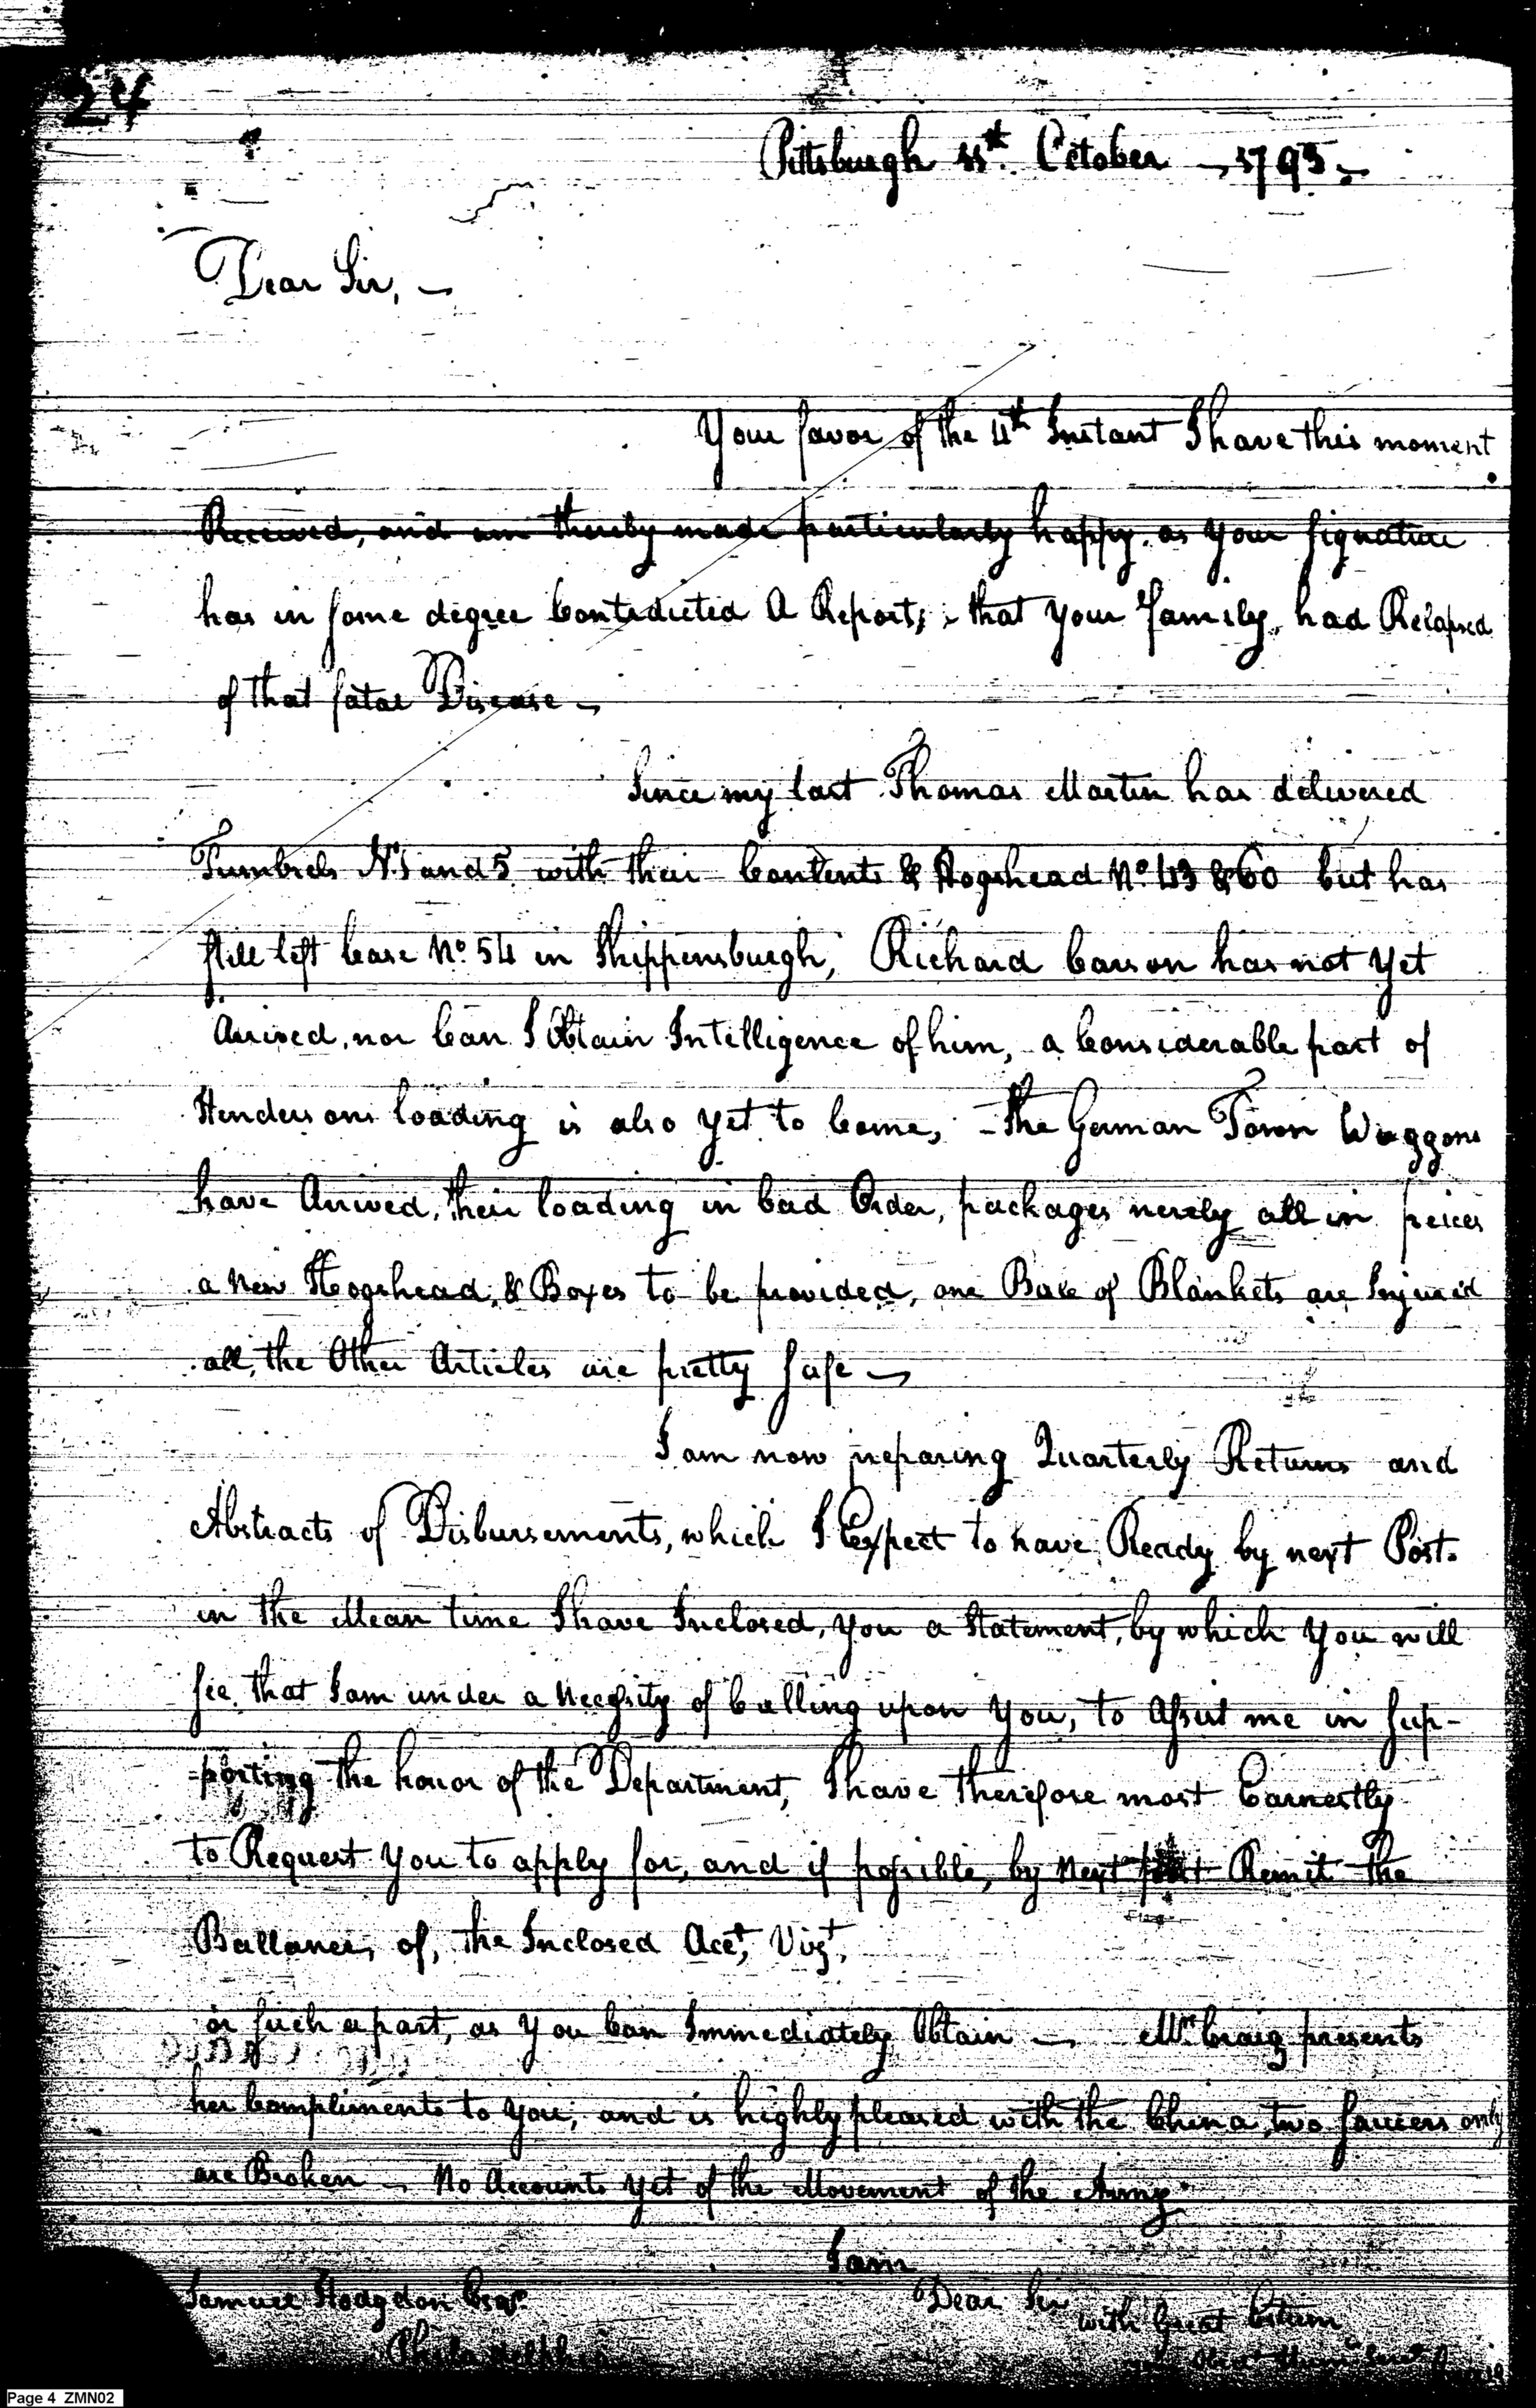 24
Pittsburgh 11th October 1793
Dear Sir,
Your favor of the 4th Instant I have this moment
Received, and am thereby made particularly happy, as your signature
has in some degree Contradicted A Report; that your family, had Relapsed
of that fatal Disease
Since my last Thomas Martin has delivered
Tumbrels No. 1 and 5 with their Contents & Hogshead No. 43 & 60 but has
still left Case No. 54 in Shippensburgh, Richard Carson has not yet
Arrived, nor Can I Obtain Intelligence of him, a Considerable part of
Hendersons loading is also yet to Come, The German Town Waggons
have Arrived, their loading in bad Order, packages nerely all in peices
a New Hogshead, & Boxes to be provided, one Bale of Blankets are Injured
all, the Other Articles are pretty safe
I am now preparing Quarterly Returns and
Abstracts of Disbursements, which I Expect to have Ready by next Post.
in the Mean time I have Inclosed, you a Statement, by which you will
see, that I am under a Necessity of Calling upon you, to Assist me in sup-
-porting the honor of the Department, I have therefore most Earnestly
to Request you to apply for, and if possible, by Next post Remit the
Ballance, of, the Inclosed Acct, Vizt,
or such a part, as you Can Immediately Obtain Mrs Craig presents
her Compliments to you, and is highly pleased with the China, two saucers only
are Broken No Accounts yet of the Movement of the Army
I am
Dear Sir
with Great Esteem
Samuel Hodgdon Esqr
Philadelphia
Page 4 ZMN02